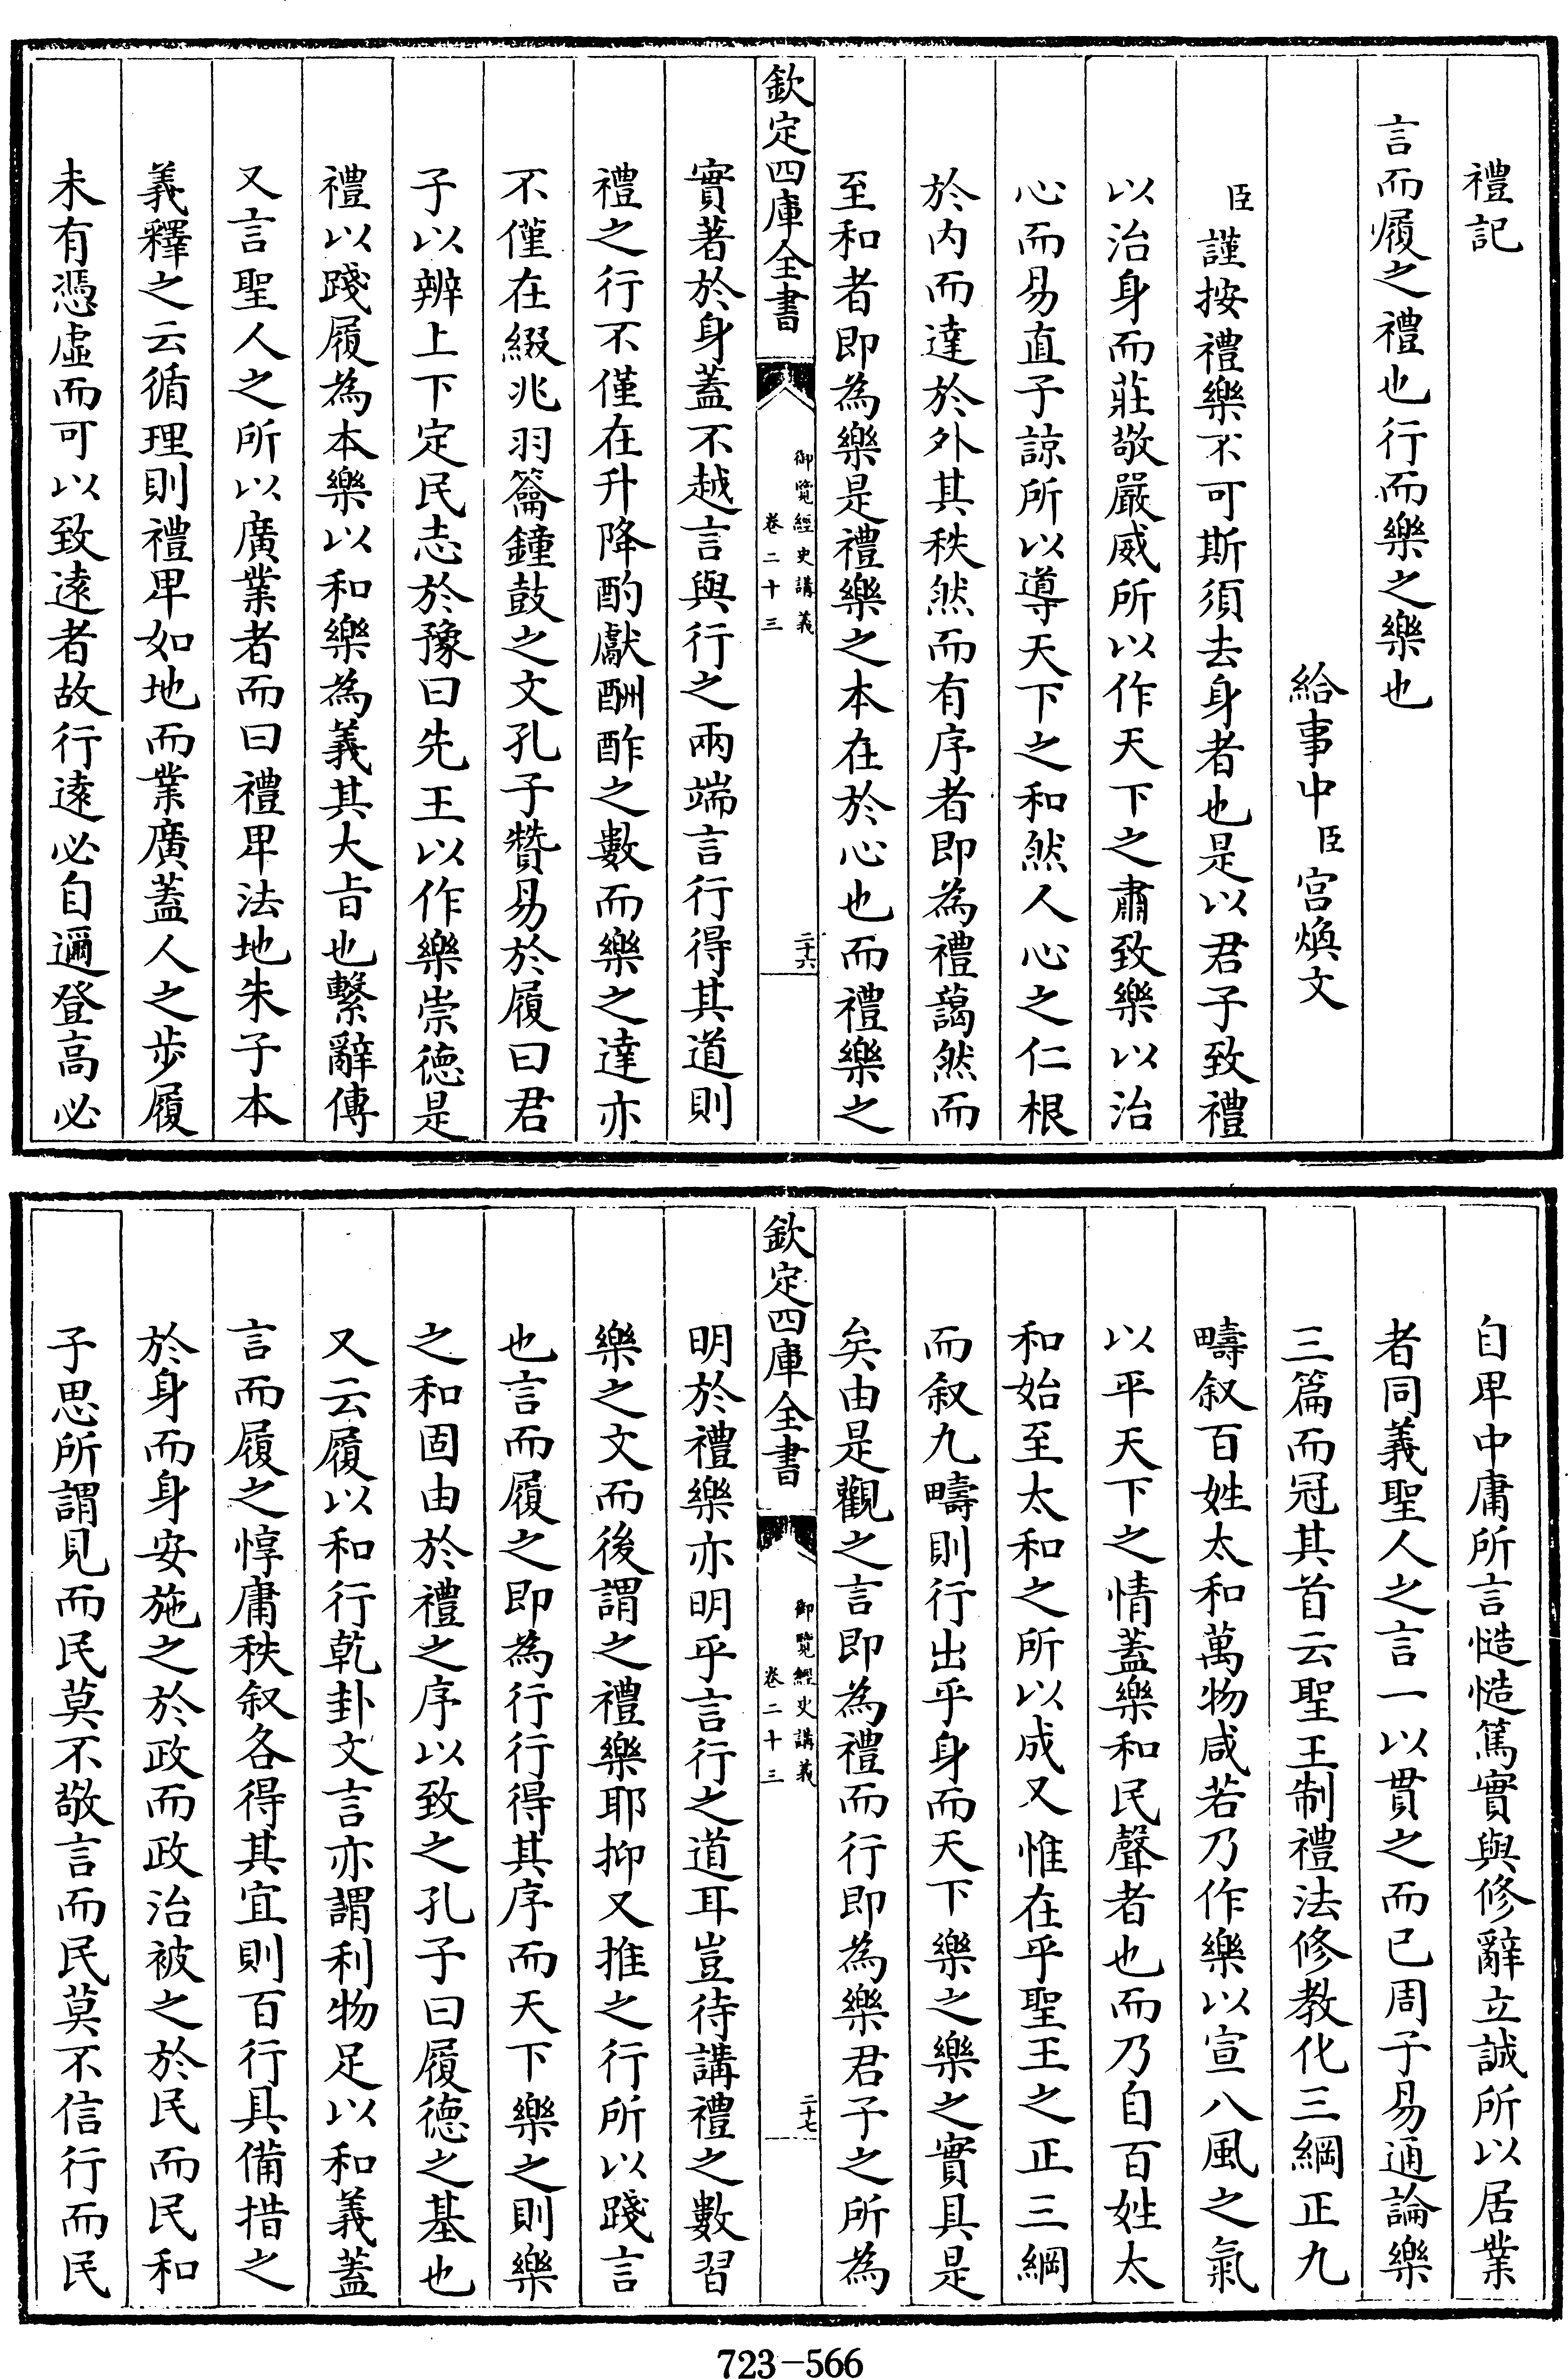 禮記
言而履之禮也行而樂之樂也
給事中臣宫煥文
臣謹按禮樂不可斯須去身者也是以君子致禮
以治身而莊敬嚴威所以作天下之肅致樂以治
心而易直子諒所以導天下之和然人心之仁根
於内而達於外其秩然而有序者即為禮藹然而
至和者即為樂是禮樂之本在於心也而禮樂之
欽定四庫全書
御覽經史講義
卷二十三
二十六
實著於身蓋不越言與行之兩端言行得其道則
禮之行不僅在升降酌獻酬酢之數而樂之達亦
不僅在綴兆羽籥鐘鼓之文孔子贊易於履曰君
子以辨上下定民志於豫曰先王以作樂崇德是
禮以踐履為本樂以和樂為義其大旨也繫辭傳
又言聖人之所以廣業者而曰禮卑法地朱子本
義釋之云循理則禮卑如地而業廣蓋人之步履
未有憑虛而可以致遠者故行遠必自邇登高必
自卑中庸所言慥慥篤實與修辭立誠所以居業
者同義聖人之言一以貫之而已周子易通論樂
三篇而冠其首云聖王制禮法修教化三綱正九
疇叙百姓太和萬物咸若乃作樂以宣八風之氣
以平天下之情蓋樂和民聲者也而乃自百姓太
和始至太和之所以成又惟在乎聖王之正三綱
而叙九疇則行出乎身而天下樂之樂之實具是
矣由是觀之言即為禮而行即為樂君子之所為
欽定四庫全書
御覽經史講義
卷二十三
二十七
明於禮樂亦明乎言行之道耳豈待講禮之數習
樂之文而後謂之禮樂耶抑又推之行所以踐言
也言而履之即為行行得其序而天下樂之則樂
之和固由於禮之序以致之孔子曰履德之基也
又云履以和行乾卦文言亦謂利物足以和義蓋
言而履之惇庸秩叙各得其宜則百行具備措之
於身而身安施之於政而政治被之於民而民和
子思所謂見而民莫不敬言而民莫不信行而民
723-566